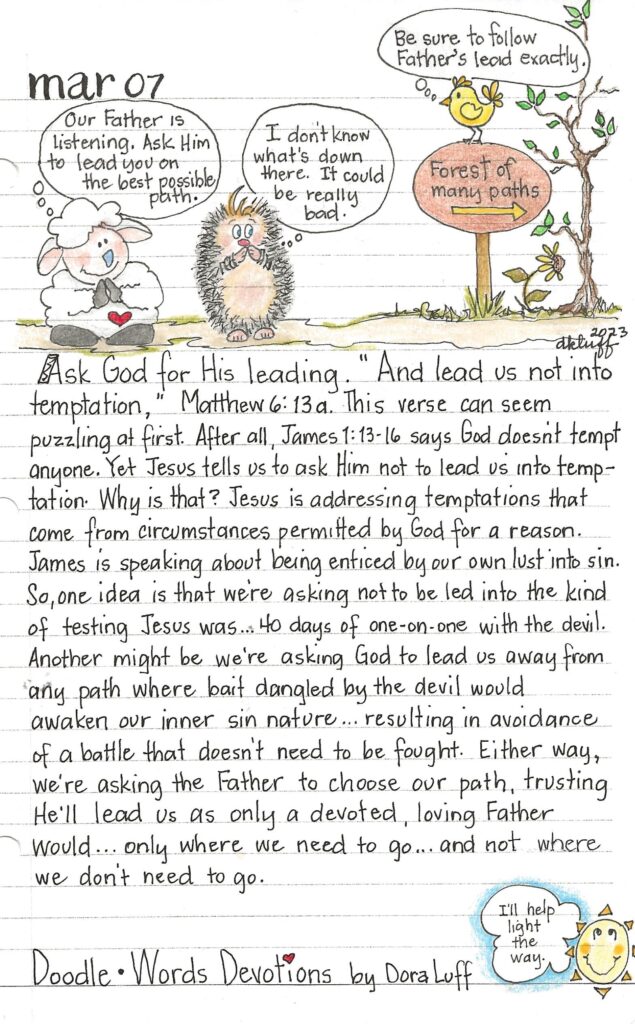 mar 07
Be sure to follow
Father's lead exactly.
Our Father is
listening. Ask Him
to lead you on
the best possible
path.
I don't know
what's down
there. It could
be really
bad.
Forest of
many paths
dkluff 2023
Ask God for His leading. "And lead us not into
temptation," Matthew 6:13a. This verse can seem
puzzling at first. After all, James 1:13-16 says God doesn't tempt
anyone. Yet Jesus tells us to ask Him not to lead us into temp-
tation. Why is that? Jesus is addressing temptations that
come from circumstances permitted by God for a reason.
James is speaking about being enticed by our own lust into sin.
So, one idea is that we're asking not to be led into the kind
of testing Jesus was... 40 days of one-on-one with the devil.
Another might be we're asking God to lead us away from
any path where bait dangled by the devil would
awaken our inner sin nature... resulting in avoidance
of a battle that doesn't need to be fought. Either way,
we're asking the Father to choose our path, trusting
He'll lead us as only a devoted, loving Father
would... only where we need to go... and not where
we don't need to go.
I'll help
light
the
way.
Doodle • Words Devotions by Dora Luff